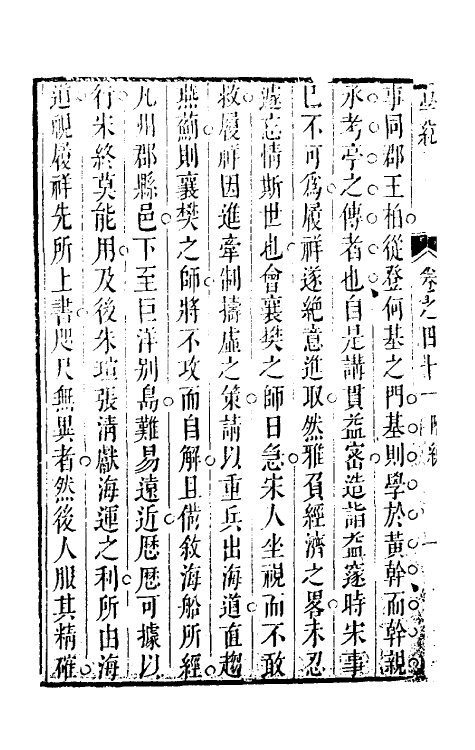 事同郡王柏從登何基之門基則學於黃幹而幹親
承考亭之傳者也自是講貫益密造詣益邃時宋事
已不可為履祥遂絕意進取然雅負經濟之畧未忍
遽忘情斯世也會襄樊之師日急宋人坐視而不敢
救履祥因進牽制擣虛之策請以重兵出海道直趨
燕薊則襄樊之師將不攻而自解且備敘海船所經
凡州郡縣邑下至巨洋別島難易遠近歷歷可據以
行宋終莫能用及後朱瑄張清獻海運之利所由海
道視履祥先所上書咫尺無異者然後人服其精確
卷之四十一